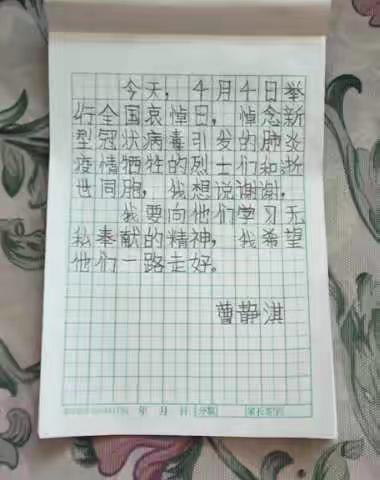 今天，4月4日举
行全国哀悼日，悼念新
型冠状病毒引发的肺炎
疫情牺牲的烈士们和逝
世同胞，我想说谢谢，
我要向他们学习无
私奉献的精神，我希望
他们一路走好。
曹静淇
年 月 日 分数 家长签字